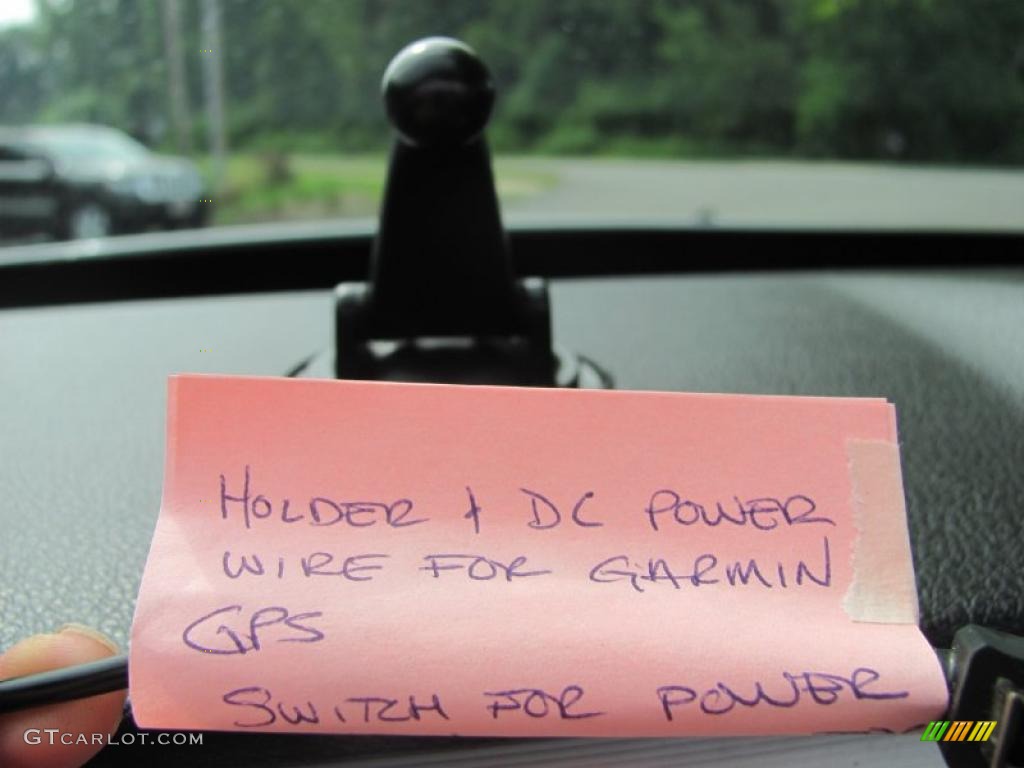 HOLDER & DC POWER
WIRE FOR GARMIN
GPS
SWITCH FOR POWER
GTCARLOT.COM